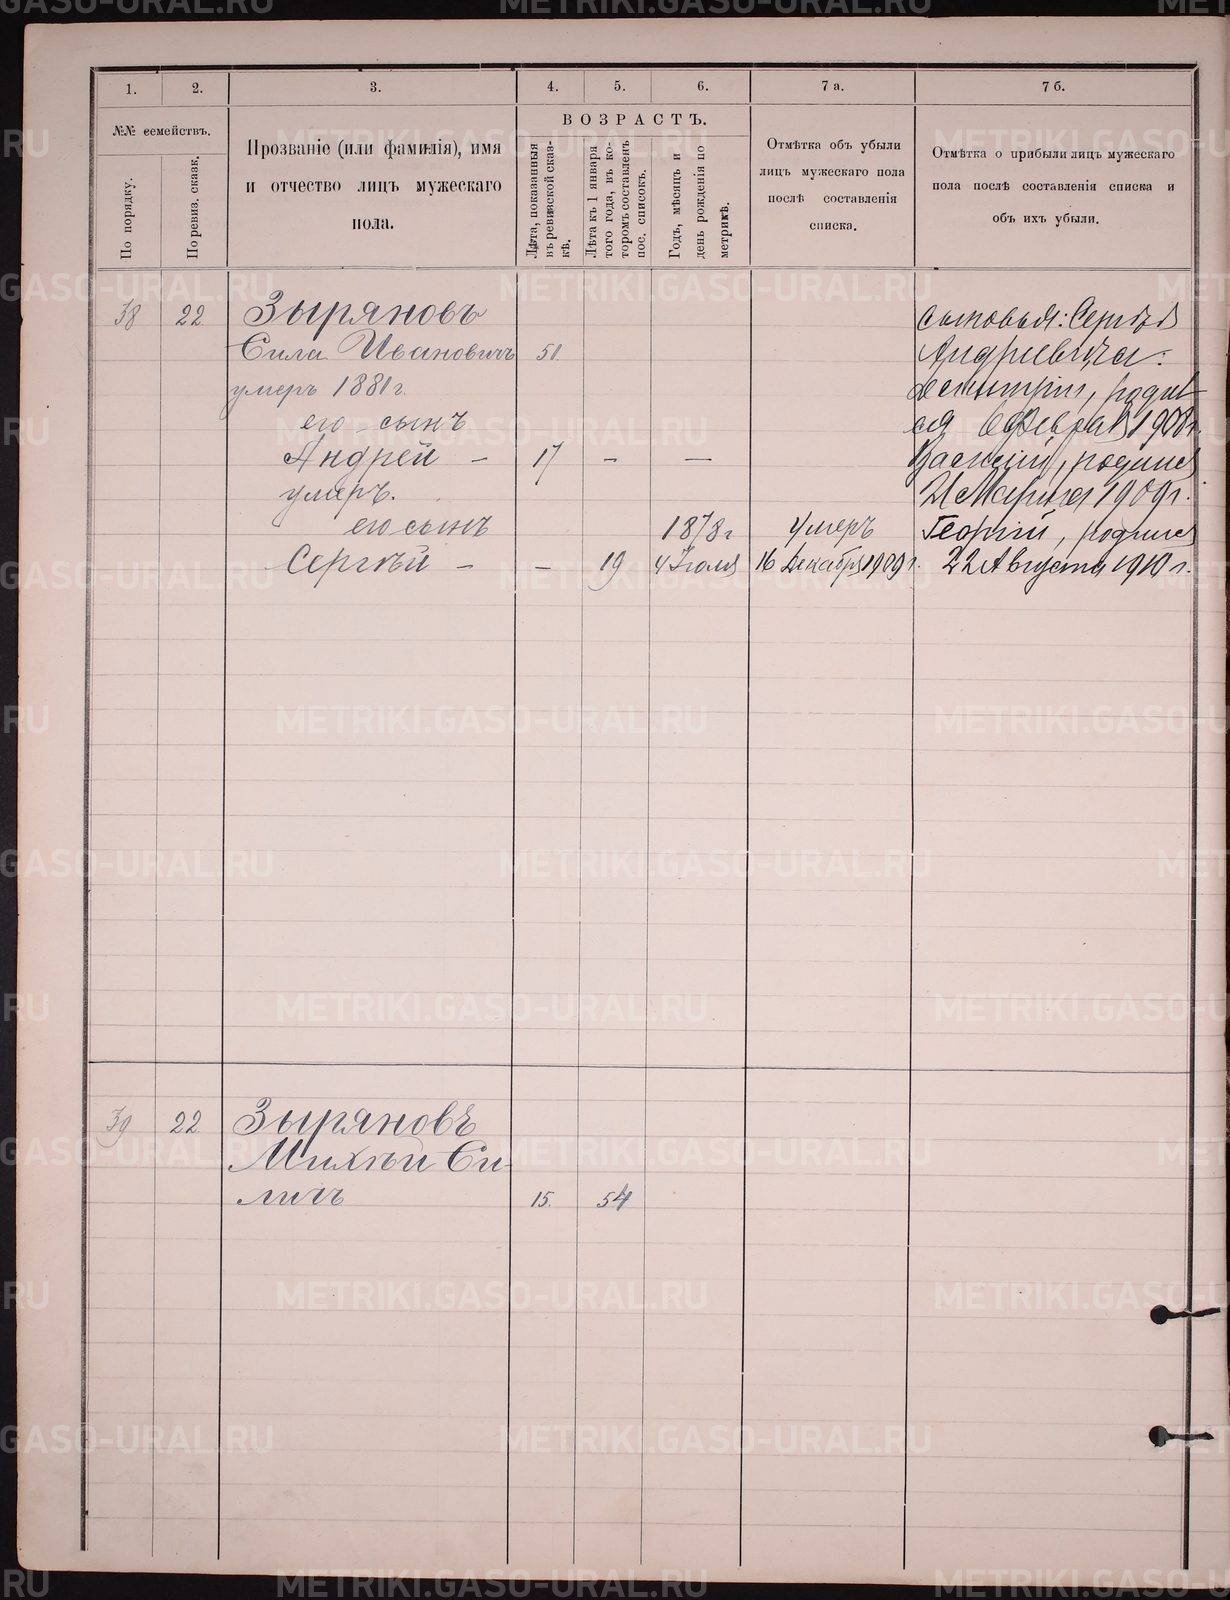 1.
2.
3.
4.
5.
6.
7 а.
7 б.
№№ семействъ.
По порядку.
По ревиз. сказк.
Прозваніе (или фамилія), имя
и отчество лицъ мужескаго
пола.
ВОЗРАСТЪ.
Лѣта, показанныя
въ ревизской сказ-
кѣ.
Лѣта къ 1 января
того года, въ ко-
торомъ составленъ
пос. списокъ.
Годъ, мѣсяцъ и
день рожденія по
метрикѣ.
Отмѣтка объ убыли
лицъ мужескаго пола
послѣ составленія
списка.
Отмѣтка о прибыли лицъ мужескаго
пола послѣ составленія списка и
объ ихъ убыли.
38 22 Зыряновъ
Сила Ивановичъ 51
умеръ 1881 г.
его сынъ
Андрей – 17 – –
умеръ.
его сынъ 1878 г Умеръ
Сергѣй – – 19 4 Іюля 16 Декабря 1909 г.
сыновья: Сергѣя
Андреевича:
Димитрій, родил
ся Феврал 1908 г.
Василій, родился
21 Марта 1909 г.
Георгій, родился
22 Августа 1910 г.
39 22 Зыряновъ
Михѣй Си-
личъ 15. 54
METRIKI.GASO-URAL.RU